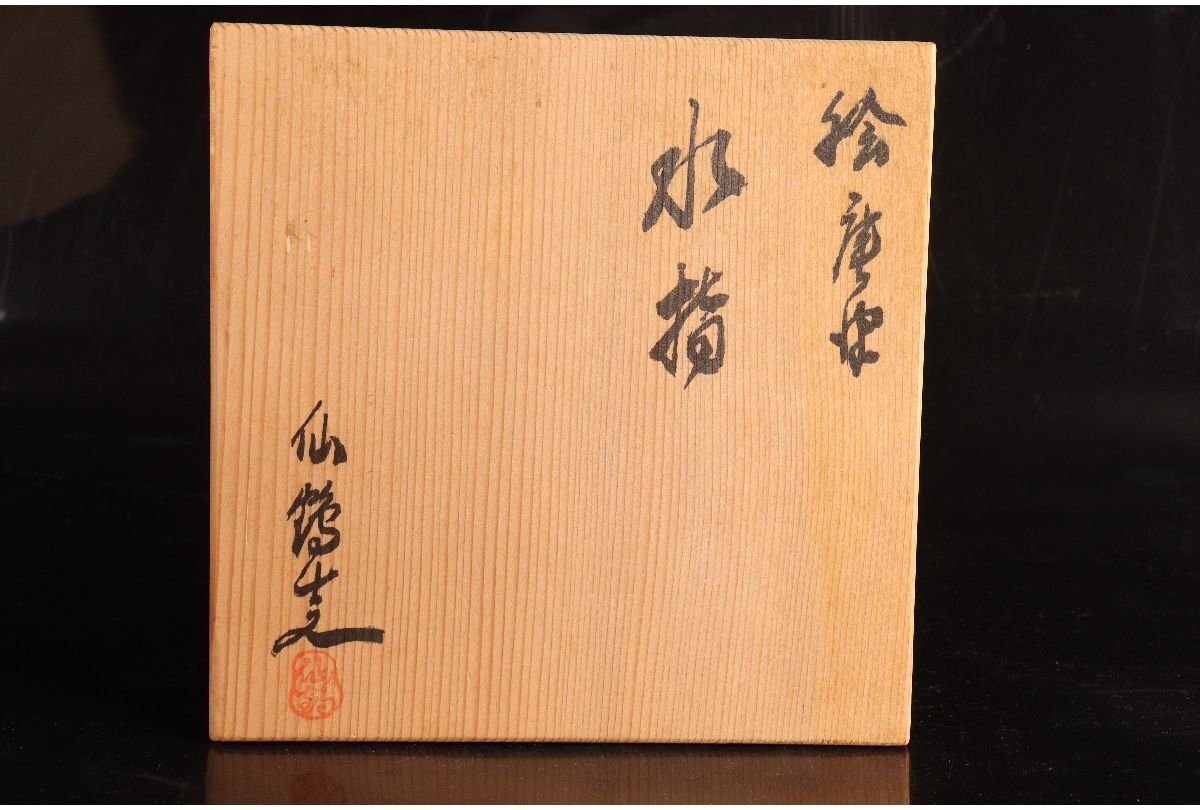 絵唐津
水指
仙鶴